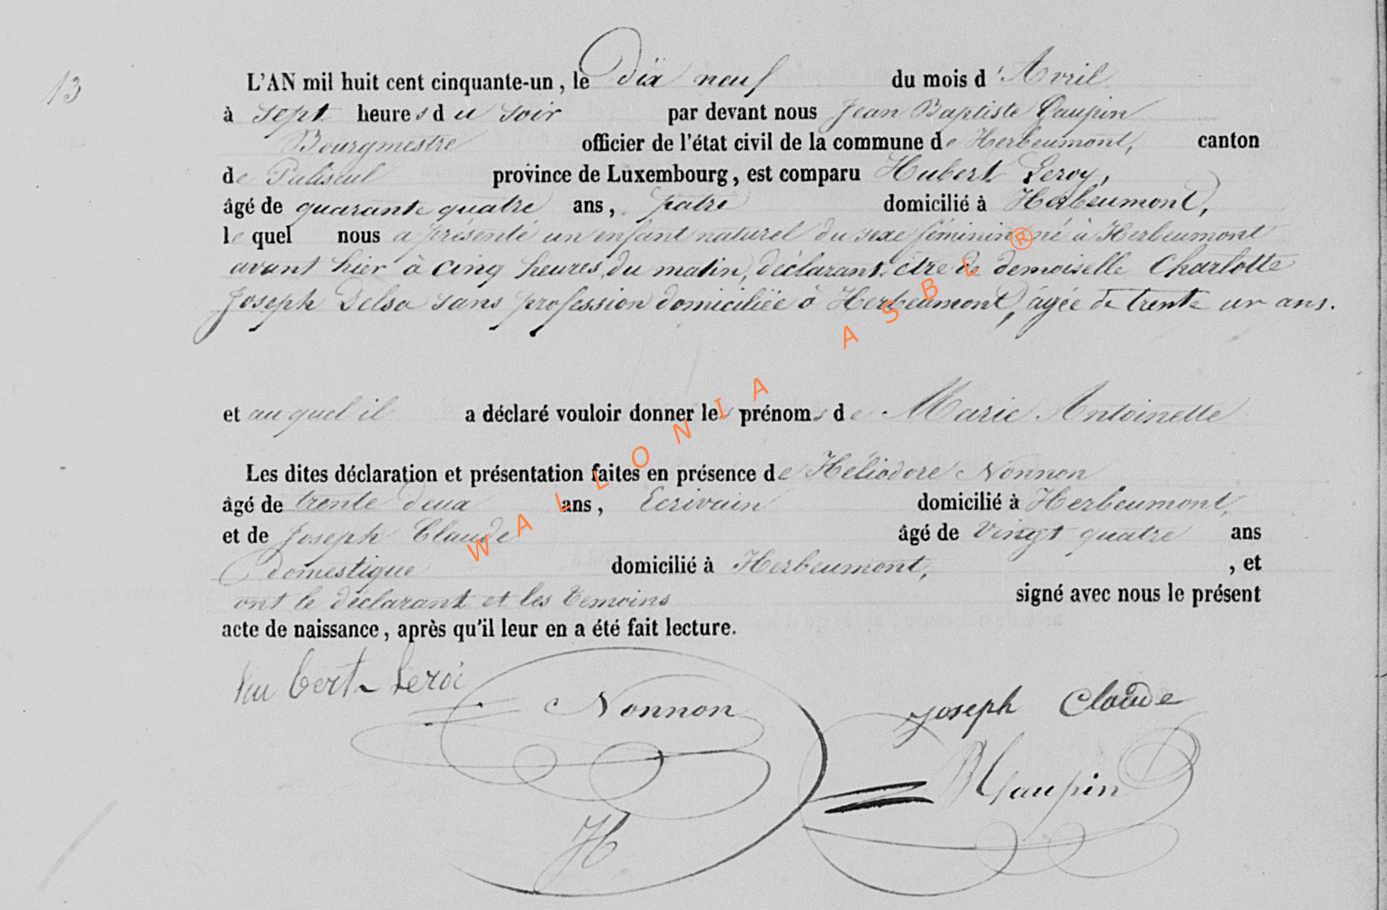 13
L'AN mil huit cent cinquante-un, le Dix neuf du mois d'Avril
à sept heures du soir par devant nous Jean Baptiste Gaupin
Bourgmestre officier de l'état civil de la commune de Herbeumont, canton
de Paliseul province de Luxembourg, est comparu Hubert Leroy,
âgé de quarante quatre ans, patre domicilié à Herbeumont,
le quel nous a présenté un enfant naturel du sexe féminin né à Herbeumont
avant hier à cinq heures du matin, déclarant être de demoiselle Charlotte
Joseph Delsa sans profession domiciliée à Herbeumont, âgée de trente un ans.
et auquel il a déclaré vouloir donner les prénoms de Marie Antoinette
Les dites déclaration et présentation faites en présence de Héliodore Nonnon
âgé de trente deux ans, Ecrivain domicilié à Herbeumont,
et de Joseph Claude âgé de vingt quatre ans
domestique domicilié à Herbeumont, , et
ont le déclarant et les témoins signé avec nous le présent
acte de naissance, après qu'il leur en a été fait lecture.
hubert Leroi
Nonnon
Joseph Claude
Gaupin
H
WALLONIA ASBL®